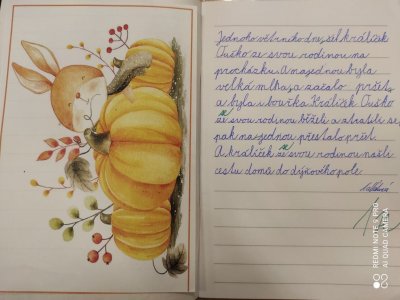 Jednoho větrného dne, šel králíček
Ouško ze svou rodinou na
procházku. A najednou byla
velká mlha, a začalo pršet,
a byla i bouřka. Králíček Ouško
ze svou rodinou běželi a ztratili se,
pak najednou přestalo pršet.
A králíček se svou rodinou našli
cestu domů do dýňového pole.
REDMI NOTE 9 PRO
AI QUAD CAMERA